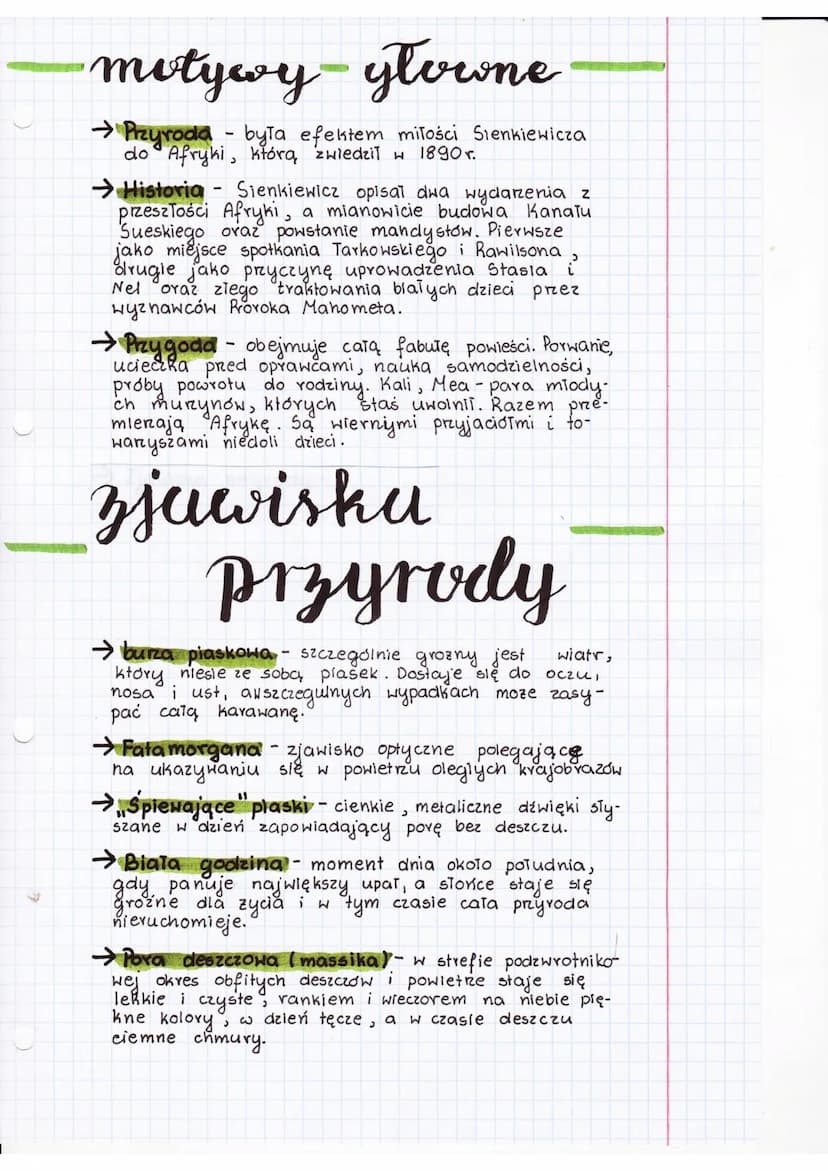 motywy - główne
→ Przyroda - była efektem miłości Sienkiewicza
do Afryki, którą zwiedził w 1890r.
→ Historia - Sienkiewicz opisał dwa wydarzenia z
przeszłości Afryki, a mianowicie budowa Kanału
Sueskiego oraz powstanie mahdystów. Pierwsze
jako miejsce spotkania Tarkowskiego i Rawilsona,
drugie jako przyczynę uprowadzenia Stasia i
Nel oraz złego traktowania białych dzieci przez
wyznawców Proroka Mahometa.
→ Przygoda - obejmuje całą fabułę powieści. Porwanie,
ucieczka przed oprawcami, nauka samodzielności,
próby powrotu do rodziny. Kali, Mea - para młody-
ch murzynów, których Staś uwolnił. Razem prze-
mierzają Afrykę. Są wiernymi przyjaciółmi i to-
warzyszami niedoli dzieci.
zjawiska
przyrody
→ burza piaskowa - szczególnie groźny jest wiatr,
który niesie ze sobą piasek. Dostaje się do oczu,
nosa i ust, a w szczegulnych wypadkach może zasy-
pać całą karawanę.
→ Fatamorgana - zjawisko optyczne polegające
na ukazywaniu się w powietrzu oległych krajobrazów
→ „Śpiewające" piaski - cienkie, metaliczne dźwięki sły-
szane w dzień zapowiadający porę bez deszczu.
→ Biała godzina - moment dnia około południa,
gdy panuje największy upał, a słońce staje się
groźne dla życia i w tym czasie cała przyroda
nieruchomieje.
→ Pora deszczowa (massika) - w strefie podzwrotniko-
wej okres obfitych deszczów i powietrze staje się
lekkie i czyste, rankiem i wieczorem na niebie pię-
kne kolory, w dzień tęcze, a w czasie deszczu
ciemne chmury.